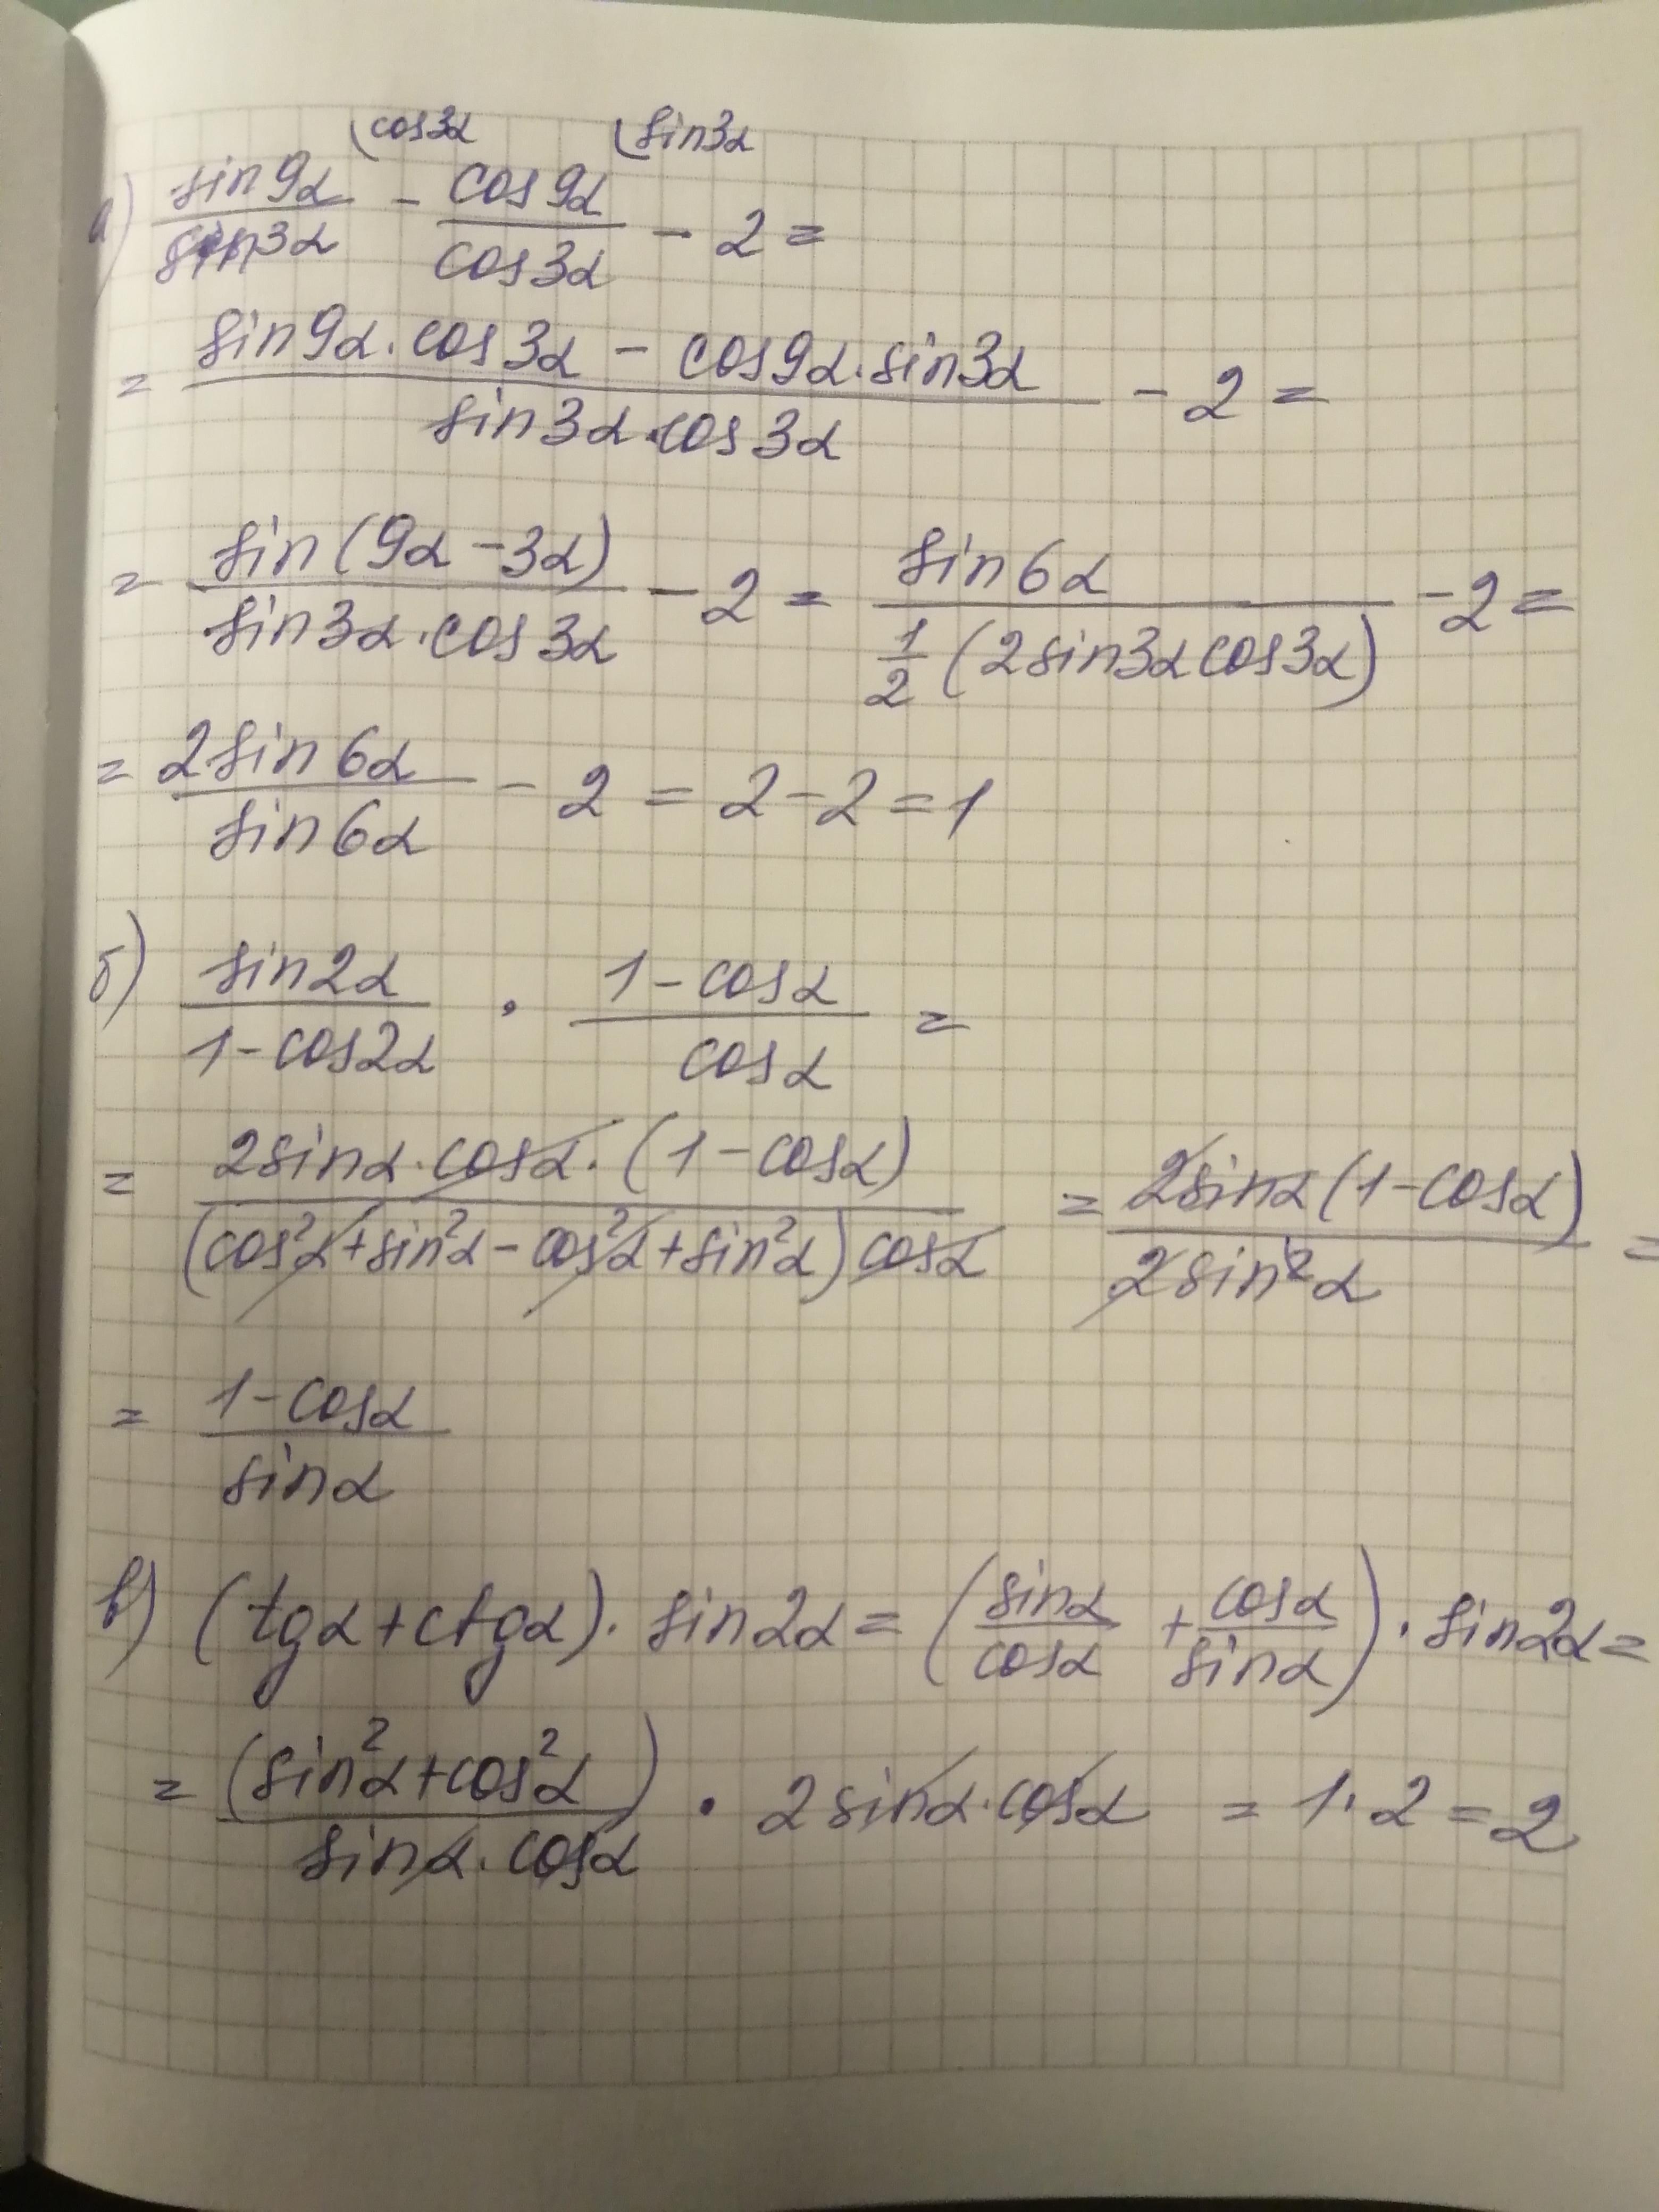 cos3α sin3α
а) sin9α/sin3α - cos9α/cos3α - 2 =
= (sin9α·cos3α - cos9α·sin3α)/(sin3α·cos3α) - 2 =
= sin(9α-3α)/(sin3α·cos3α) - 2 = sin6α/(1/2(2sin3αcos3α)) - 2 =
= 2sin6α/sin6α - 2 = 2-2 = 1
б) sin2α/(1-cos2α) · (1-cosα)/cosα =
= 2sinα·cosα·(1-cosα)/((cos²α+sin²α-cos²α+sin²α)cosα) = 2sinα(1-cosα)/(2sin²α) =
= (1-cosα)/sinα
в) (tgα+ctgα)·sin2α = (sinα/cosα + cosα/sinα)·sin2α =
= (sin²α+cos²α)/(sinα·cosα) · 2sinα·cosα = 1·2 = 2